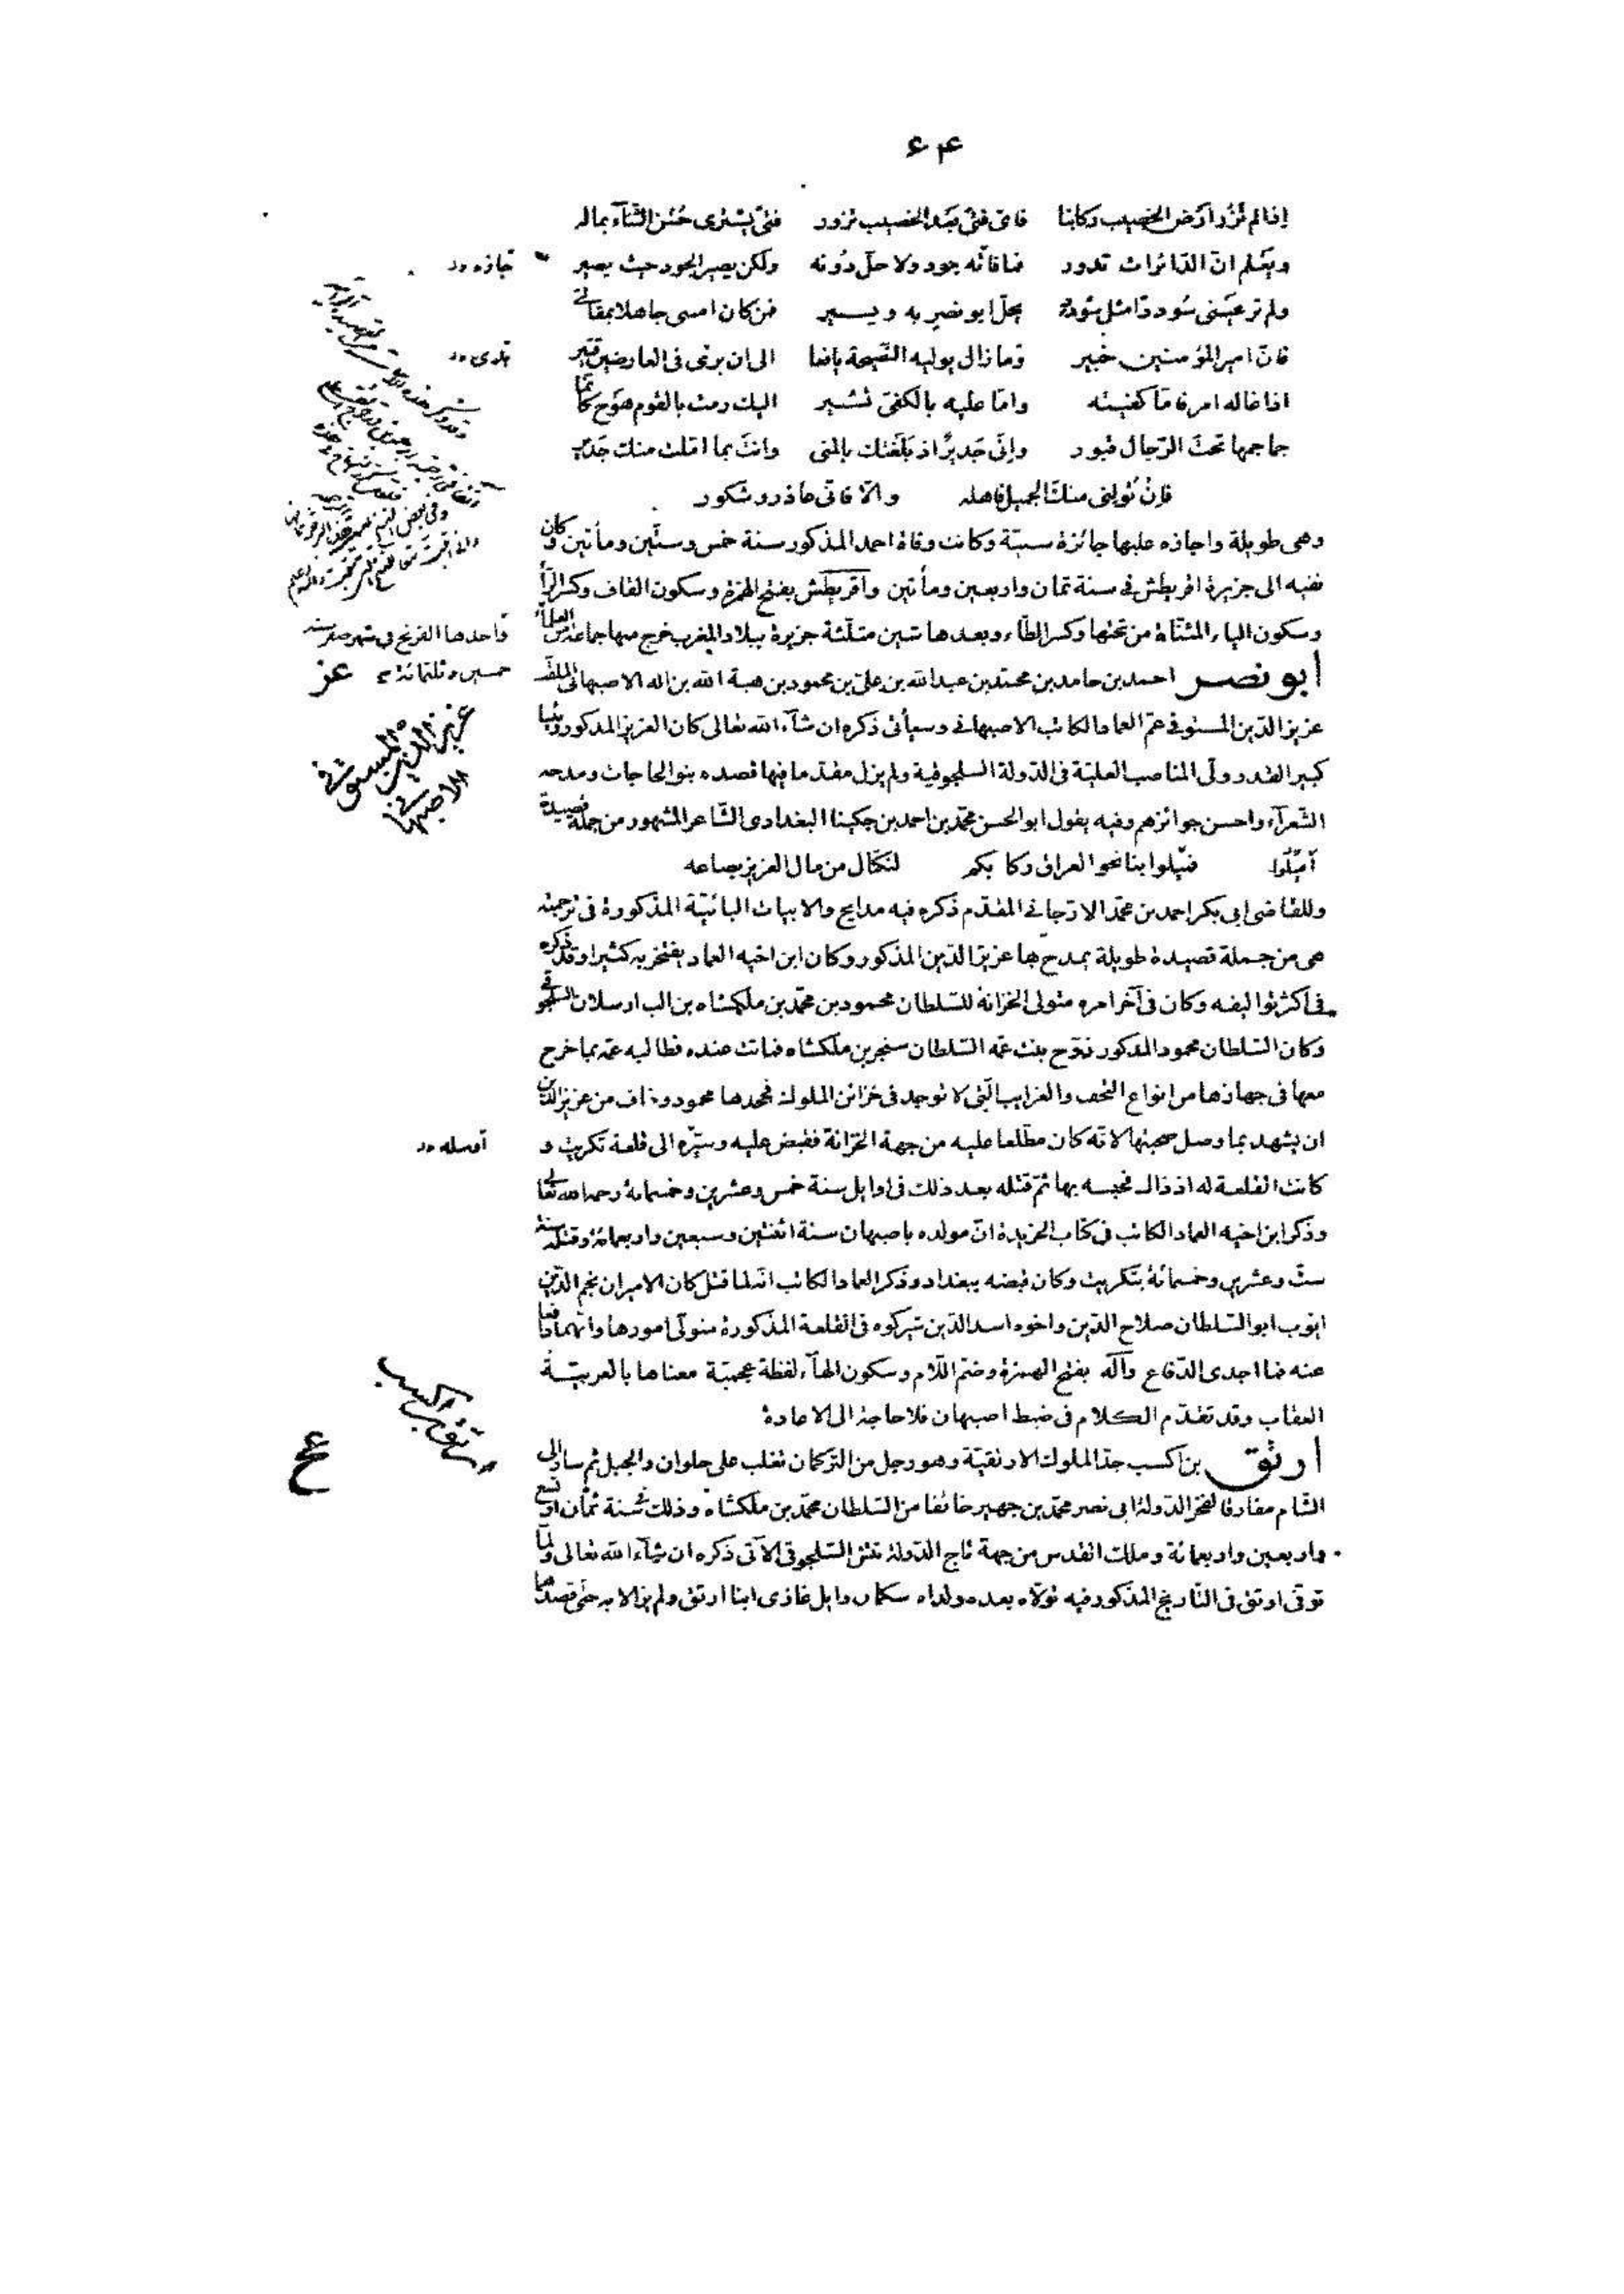 ۶۴
اذا لم تزر ارض الخصيب ركابنا فاىّ فتىً بعد الخصيب تزور فتىً يشترى حُسْن الثنآء بماله
ويعلم انّ الدّائرات تدور فما فاته جود ولا حلّ دونه ولكن يصير الجود حيث يصير
ولم تر عينى سُوددًا مثل سُودد يحلّ ابو نصر به ويسير فمن كان امسى جاهلا بمقالتى
فانّ امير المؤمنين خبير وما زال يوليه النّصيحة يافعا الى ان بدى فى العارضين قتير
اذا غاله امر فامّا كفيته وامّا عليه بالكفىّ تشير اليك رمت بالقوم هوج كأنّما
جماجمها تحت الرّجال قبور وإنّى جديرٌ اذ بلغتك بالمنى وانت بما امّلت منك جدير
فإنْ تُولنى منك الجميل فاهله والّا فانّى عاذر وشكور
وهى طويلة واجازه عليها جائزة سنيّة وكانت وفاة احمد المذكور سنة خمس وستّين ومأتين وكان
نفيه الى جزيرة اقريطش فى سنة ثمان واربعين ومأتين واقريطش بفتح الهمزة وسكون القاف وكسر الرّآ
وسكون الياء المثنّاة من تحتها وكسر الطّاء وبعدها شين مثلّثة جزيرة ببلاد المغرب خرج منها جماعة من العلمآء
واخذها الفرنج فى شهر صفر سنة
خمسين وثلثمائة
أبو نصر احمد بن حامد بن محمّد بن عبد الله بن علىّ بن محمود بن هبة الله بن اله الاصبهانى الملقّب
عزيز الدّين المستوفى عمّ العماد الكاتب الاصبهانى وسيأتى ذكره ان شآء الله تعالى كان العزيز المذكور رئيسا
كبير القدر ولّى المناصب العليّة فى الدّولة السلجوقية ولم يزل مقدّما فيها قصده بنو الحاجات ومدحه
الشّعرآء واحسن جوائزهم وفيه يقول ابو الحسن محمّد بن احمد بن جكينا البغدادى الشّاعر المشهور من جملة قصيدة
أميلوا بنا نحو العراق ركابكم لنكتال من مال العزيز بصاعه
وللقاضى ابى بكر احمد بن محمّد الارّجانى المقدّم ذكره فيه مدايح والابيات البائيّة المذكورة فى ترجمته
هى من جملة قصيدة طويلة يمدح بها عزيز الدّين المذكور وكان ابن اخيه العماد يفتخر به كثيرا وقد ذكره
فى اكثر تواليفه وكان فى آخر امره متولى الخزانة للسّلطان محمود بن محمّد بن ملكشاه بن الب ارسلان السلجوقى
وكان السّلطان محمود المذكور تزوّج بنت عمّه السّلطان سنجر بن ملكشاه فماتت عنده فطالبه عمّه بما خرج
معها فى جهازها من انواع التحف والغرايب الّتى لا توجد فى خزائن الملوك فجحدها محمود وخاف من عزيز الدّين
ان يشهد بما وصل صحبتها لانّه كان مطّلعا عليه من جهة الخزانة فقبض عليه وسيّره الى قلعة تكريت و
كانت القلعة له اذ ذاك فحبسه بها ثمّ قتله بعد ذلك فى اوايل سنة خمس وعشرين وخمسمائة رحمه الله تعالى
وذكر ابن اخيه العماد الكاتب فى كتاب الخريدة انّ مولده باصبهان سنة اثنتين وسبعين واربعمائة وقتله سنة
ستّ وعشرين وخمسمائة بتكريت وكان قبضه ببغداد وذكر العماد الكاتب انّه لما قتل كان الاميران نجم الدّين
ايّوب ابو السّلطان صلاح الدّين واخوه اسد الدّين شيركوه فى القلعة المذكورة متولّى امورها وانّهما دافعا
عنه فما اجدى الدّفاع وآله بفتح الهمزة وضمّ اللّام وسكون الهآء لفظة عجميّة معناها بالعربيّة
العقاب وقد تقدّم الكلام فى ضبط اصبهان فلا حاجة الى الاعادة
أرتق بن اكسب جدّ الملوك الارتقيّة وهو رجل من التركمان تغلب على حلوان والجبل ثم سار الى
الشّام مفارقا لفخر الدّولة ابى نصر محمّد بن جهير خائفا من السّلطان محمّد بن ملكشاه وذلك فى سنة ثمان او تسع
واربعين واربعمائة وملك القدس من جهة تاج الدّولة تتش السّلجوقى الآتى ذكره ان شآء الله تعالى ولمّا
توفّى ارتق فى التّاريخ المذكور فيه تولّاه بعده ولداه سكمان وايل غازى ابنا ارتق ولم يزالا به حتّى قصدهما
عز
عزيز الدين المستوفى
الاصبهانى
ارتق بن اكسب